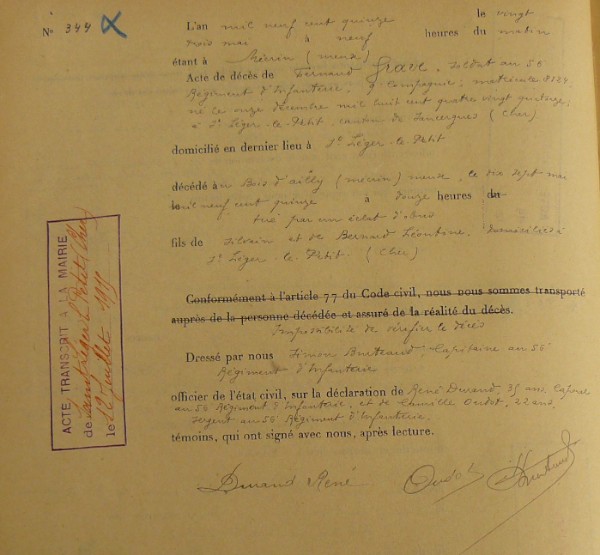 No 344
L'an mil neuf cent quinze le vingt
trois mai à neuf heures du matin
étant à Mécrin (meuse)
Acte de décès de Fernand Grave, soldat au 56
Régiment d'Infanterie, 9 Compagnie, matricule 8124
né le onze décembre mil huit cent quatre vingt quatorze,
à St Léger-le-Petit, canton de Sancergues (Cher)
domicilié en dernier lieu à St Léger-le-Petit
décédé au Bois d'ailly (mécrin) meuse, le dix sept mai
mil neuf cent quinze à douze heures du
tué par un éclat d'obus
fils de Silvain et de Bernard Léontine, domiciliés à
St Léger-le-Petit. (Cher)
Conformément à l'article 77 du Code civil, nous nous sommes transporté
auprès de la personne décédée et assuré de la réalité du décès.
Impossibilité de vérifier le décès
Dressé par nous Simon Capitaine au 56
Régiment d'Infanterie
officier de l'état civil, sur la déclaration de René Durand, 35 ans, Caporal
au 56 Régiment d'Infanterie, et de Camille Oudot, 22 ans,
Sergent au 56 Régiment d'Infanterie.
témoins, qui ont signé avec nous, après lecture.
Durand René Oudot
ACTE TRANSCRIT A LA MAIRIE
de Saint Léger le Petit (Cher)
le juillet 1915